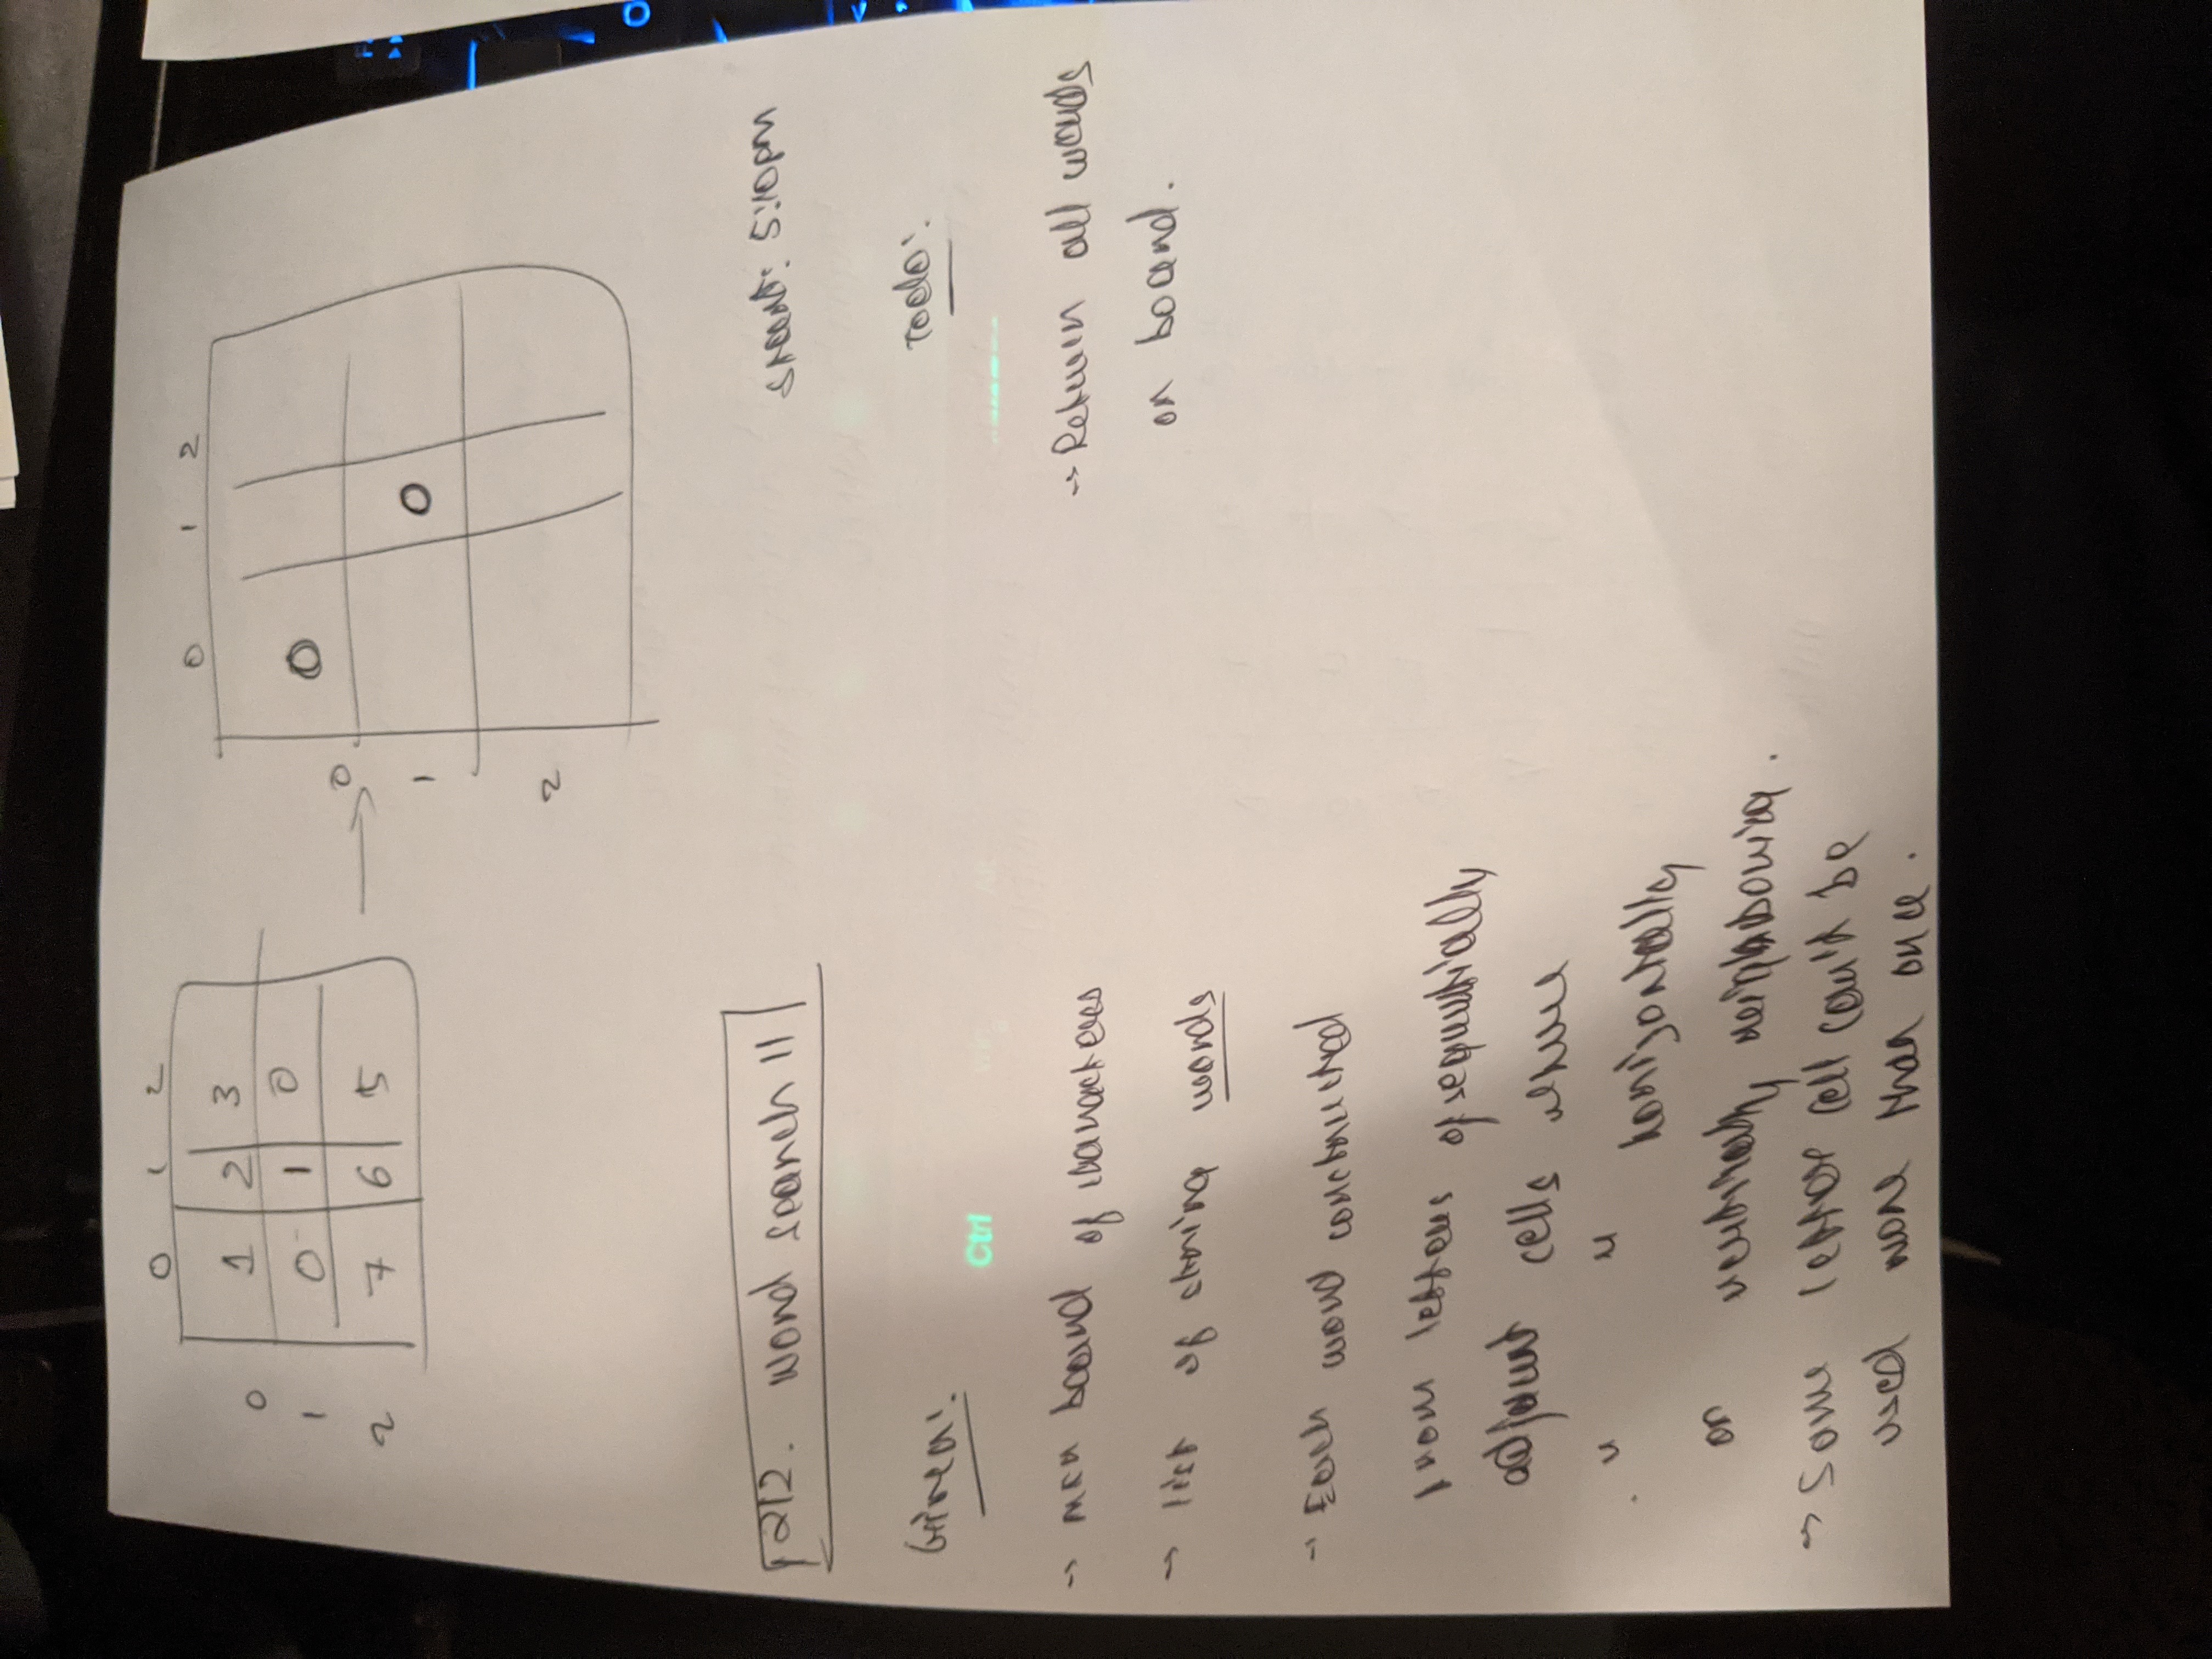 0 1 2
0 1 2 3
1 0 1 0
2 7 6 5
0 1 2
0 0
1 0
2
212. Word search II
Start: 5:10pm
Given:
Todo:
Ctrl
→ mxn board of characters
→ list of string words
→ Each word constructed
from letters of sequentially
adjacent cells where
" " horizontally
or vertically neighbouring.
→ Same letter cell can't be
used more than once.
→ Return all words
on board.